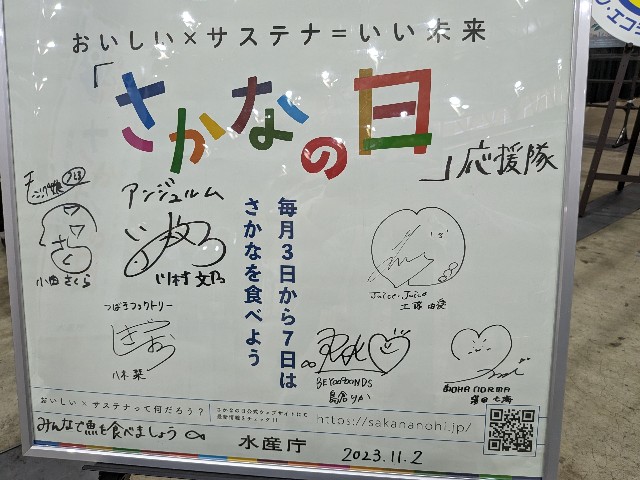 おいしい×サステナ=いい未来
「さかなの日」応援隊
モーニング娘。'23
小田さくら
アンジュルム
川村文乃
毎月3日から7日は
さかなを食べよう
Juice=Juice
工藤由愛
つばきファクトリー
八木栞
BEYOOOOONDS
島倉りか
OCHA NORMA
窪田七海
おいしい×サステナって何だろう?
さかなの日公式ウェブサイトにて
最新情報をチェック!!
https://sakananohi.jp/
みんなで魚を食べましょう
水産庁
2023.11.2